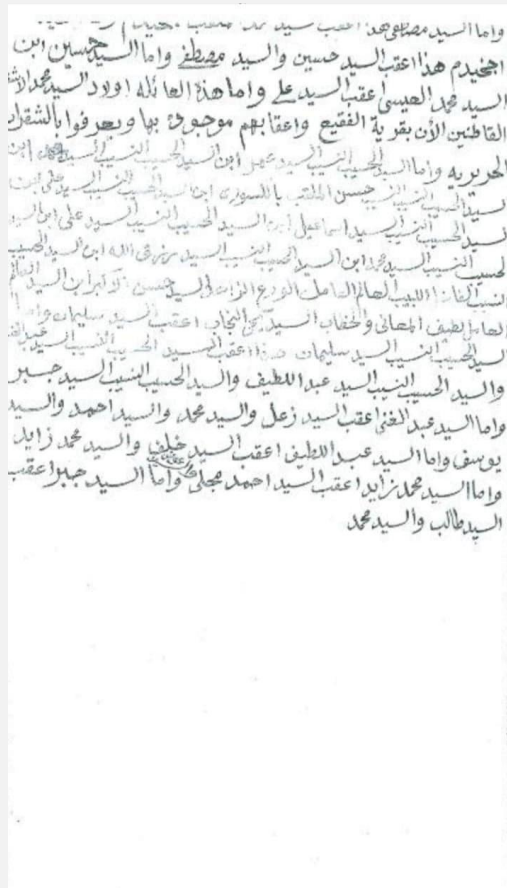 واما السيد مصطفى هذا اعقب السيد محمد
اجنيدم هذا اعقب السيد حسين والسيد مصطفى واما السيد حسين ابن
السيد محمد العيسى اعقب السيد علي واما هذة العائله اولاد السيد محمد
القاطنين الأن بقرية الفقيع واعقابهم موجودى بها ويعرفوا بالشقران
الحريريه واما السيد الحسيب النسيب السيد ابن السيد الحسيب النسيب السيد ابن
السيد الحسيب النسيب حسن الملقب بالسوري ابن السيد الحسيب النسيب السيد علي ابن
السيد الحسيب النسيب السيد اسماعيل ابن السيد الحسيب النسيب السيد علي ابن السيد
الحسيب النسيب السيد محمد ابن السيد الحسيب النسيب السيد ابن السيد الحسيب
النسيب اللبيب العالم العامل الورع الزاهد السيد حسن ابن السيد العالم
العامل لطيف المعاني السيد اعقب السيد سليمان واما
السيد الحسيب النسيب السيد سليمان هذا اعقب السيد الحسيب النسيب السيد عبد الغني
والسيد الحسيب النسيب السيد عبد اللطيف والسيد الحسيب النسيب السيد جبر
واما السيد عبد الغنى اعقب السيد زعل والسيد محمد والسيد احمد والسيد
يوسف واما السيد عبد اللطيف اعقب السيد خلف والسيد محمد زايد
واما السيد محمد زايد اعقب السيد احمد مجلي واما السيد جبر اعقب
السيد طالب والسيد محمد